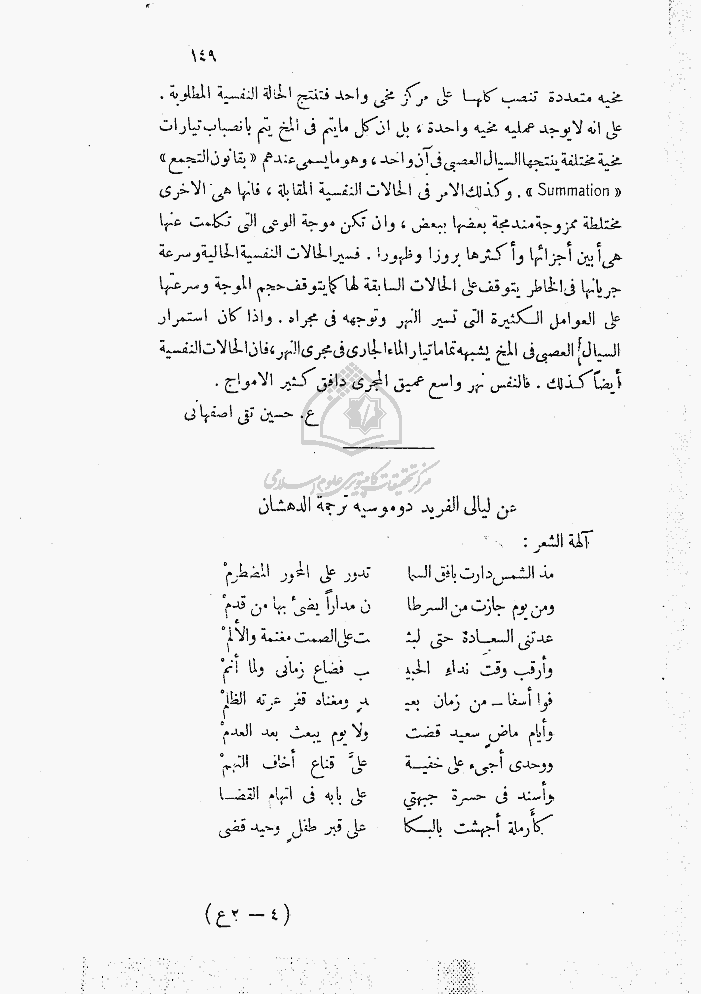 ١٤٩
مخيه متعددة تنصب كلها على مركز مخى واحد فتنتج الحالة النفسية المطلوبة .
على انه لايوجد عمليه مخيه واحدة ، بل ان كل مايتم فى المخ يتم بانصباب تيارات
مخية مختلفة ينتجها السيال العصبى فى آن واحد ، وهو مايسمى عندهم « بقانون التجمع »
« Summation » . وكذلك الامر فى الحالات النفسية المقابلة ، فانها هى الاخرى
مختلطة ممزوجة مندمجة بعضها ببعض ، وان تكن موجة الوعى التى تكلمت عنها
هى أبين أجزائها وأكثرها بروزا وظهورا . فسير الحالات النفسية الحالية وسرعة
جريانها فى الخاطر يتوقف على الحالات السابقة لها كما يتوقف حجم الموجة وسرعتها
على العوامل الكثيرة التى تسير النهر وتوجهه فى مجراه . واذا كان استمرار
السيال العصبى فى المخ يشبهه تماما تيار الماء الجارى فى مجرى النهر ، فان الحالات النفسية
أيضاً كذلك . فالنفس نهر واسع عميق المجرى دافق كثير الامواج .
ع . حسين تقى اصفهانى
مركز تحقيقات كامپيوترى علوم اسلامى
عن ليالى الفريد دوموسيه ترجمة الدهشان
آلهة الشعر :
مذ الشمس دارت بافق السما تدور على المحور المضطرمْ
ومن يوم جازت من السرطا ن مداراً يضئ بها من قدمْ
عدتنى السعادة حتى لبثـ ـت على الصمت مغتمة والألمْ
وأرقب وقت نداء الحبيـ ـب فضاع زمانى ولما أنمْ
فوا أسفا ـ من زمان بعيـ ـدٍ ومغناه قفر عرته الظلمْ
وأيام ماضٍ سعيد قضت ولا يوم يبعث بعد العدمْ
ووحدى أجىء على خفيـة علىَّ قناع أخاف التهمْ
وأسند فى حسرة جبهتي على بابه فى اتهام القضـا
كأرملة أجهشت بالبـكا على قبر طفلٍ وحيد قضى
(٤ — ٢ ع)